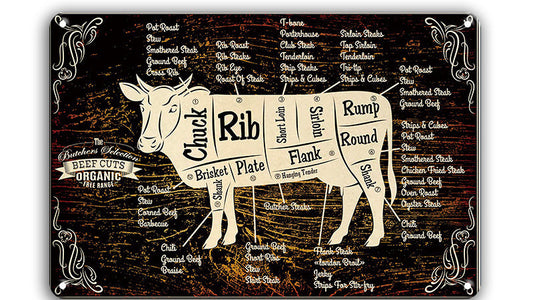 Pot Roast
Stew
Smothered Steak
Ground Beef
Cross Rib
Rib Roast
Rib Steaks
Rib Eye
Roast Of Steak
T-bone
Porterhouse
Club Steak
Tenderloin
Strip Steaks
Strips & Cubes
Sirloin Steaks
Top Sirloin
Tenderloin
Tri-tip
Strips & Cubes
Pot Roast
Stew
Smothered Steak
Ground Beef
Chuck
Rib
Short Loin
Sirloin
Rump
Round
Brisket
Plate
Flank
Hanging Tender
Shank
Shank
The
Butchers Selection
BEEF CUTS
ORGANIC
FREE RANGE
Strips & Cubes
Pot Roast
Stew
Smothered Steak
Chicken Fried Steak
Ground Beef
Oven Roast
Oyster Steak
Pot Roast
Stew
Corned Beef
Barbecue
Butcher Steaks
Chili
Ground Beef
Braise
Ground Beef
Short Ribs
Stew
Skirt Steak
Flank Steak
«London Broil»
Jerky
Strips For Stir-fry